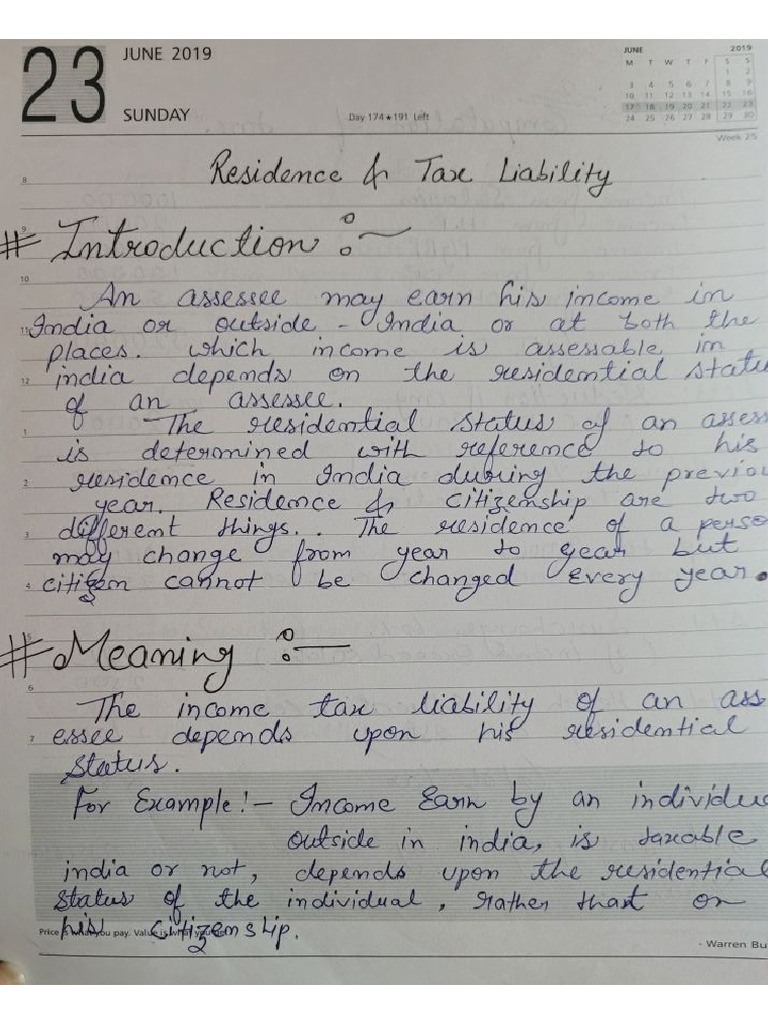 23
JUNE 2019
SUNDAY
Day 174★191 Left
JUNE 2019
M T W T F S S
1 2
3 4 5 6 7 8 9
10 11 12 13 14 15 16
17 18 19 20 21 22 23
24 25 26 27 28 29 30
Week 25
Residence & Tax Liability
# Introduction :-
An assessee may earn his income in
India or outside - India or at both the
places. which income is assessable in
india depends on the residential statu
of an assessee.
The residential status of an assess
is determined with reference to his
residence in India during the previou
year. Residence & citizenship are two
different things.. The residence of a perso
may change from year to year but
citizen cannot be changed every year.
# Meaning :-
The income tax liability of an ass
essee depends upon his residential
status.
For Example:- Income Earn by an individu
outside in india, is taxable
india or not, depends upon the residential
status of the individual, rather that on
his citizenship.
Price is what you pay. Value is what you get.
- Warren Bu
8
9
10
11
12
1
2
3
4
5
6
7